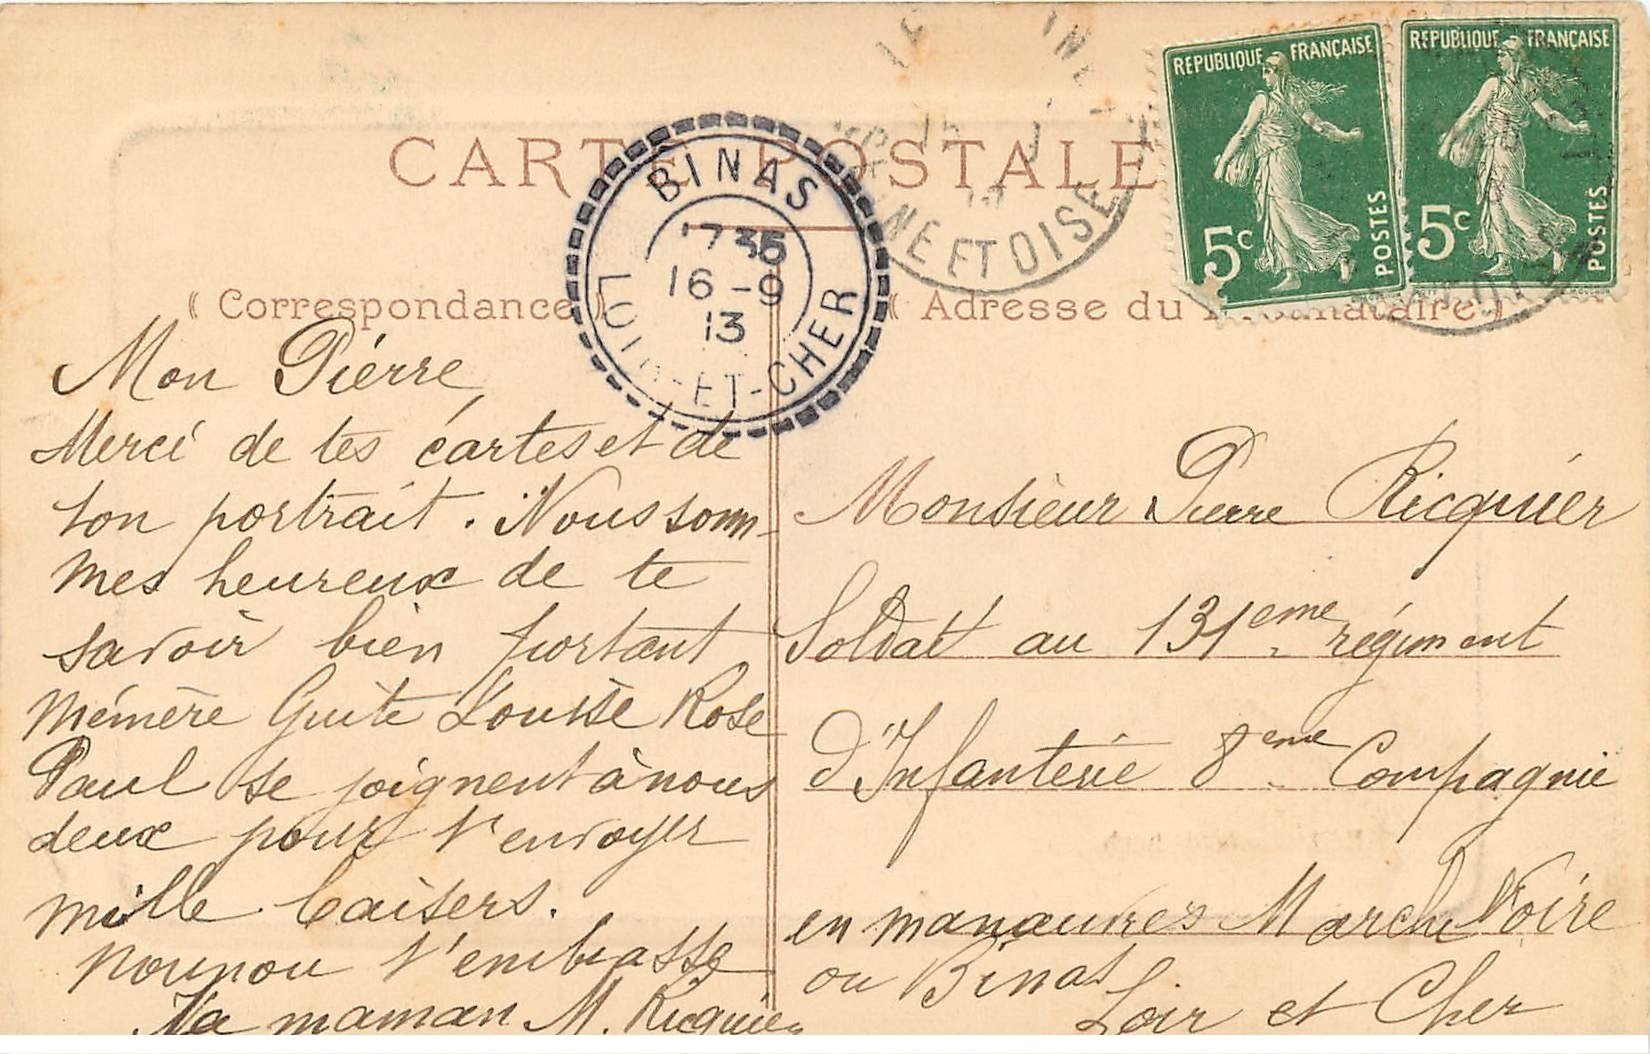 CARTE POSTALE
BINAS
17 35
16-9
13
LOIR-ET-CHER
NE ET OISE
REPUBLIQUE FRANÇAISE
5c
POSTES
REPUBLIQUE FRANÇAISE
5c
POSTES
(Correspondance)
Mon Pierre
Merci de tes cartes et de
ton portrait. Nous som-
mes heureux de te
savoir bien portant
Mémère Guite Louise Rose
Paul se joignent à nous
deux pour t'envoyer
mille baisers.
Nounou t'embrasse
Ta maman M. Ricquier
(Adresse du Destinataire)
Monsieur Pierre Ricquier
Soldat au 131eme régiment
d'Infanterie 8eme Compagnie
en manœuvres Marche Noire
ou Binas
Loir et Cher